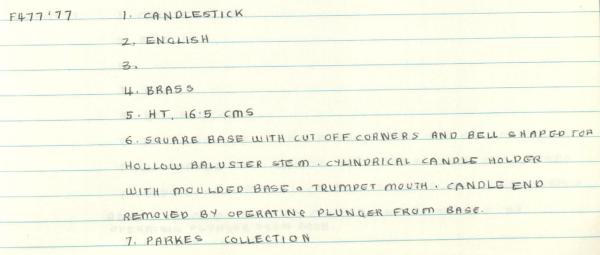 F477'77 1. CANDLESTICK
2. ENGLISH
3.
4. BRASS
5. HT. 16.5 CMS
6. SQUARE BASE WITH CUT OFF CORNERS AND BELL SHAPED TOP
HOLLOW BALUSTER STEM. CYLINDRICAL CANDLE HOLDER
WITH MOULDED BASE & TRUMPET MOUTH. CANDLE END
REMOVED BY OPERATING PLUNGER FROM BASE.
7. PARKES COLLECTION